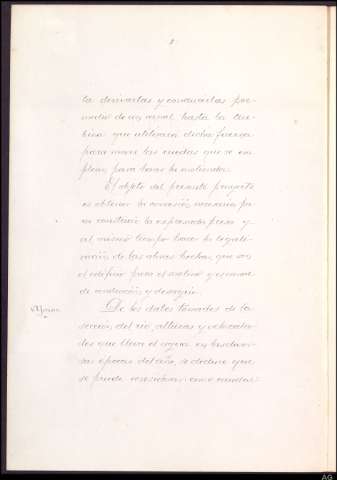 2
ta derivarlas y conducirlas por
medio de un canal hasta la tur-
bina que utilizará dicha fuerza
para mover las ruedas que se em-
plean para hacer la molienda.
El objeto del presente proyecto
es obtener la concesión necesaria pa-
ra construir la expresada presa y
al mismo tiempo hacer la legali-
zación de las obras hechas, que son
el edificio para el molino y el canal
de conducción y desagüe.
De los datos tomados de la
sección del río, alturas y velocida-
des que lleva el agua en las diver-
sas épocas del año, se deduce que
se puede considerar como caudal
AG